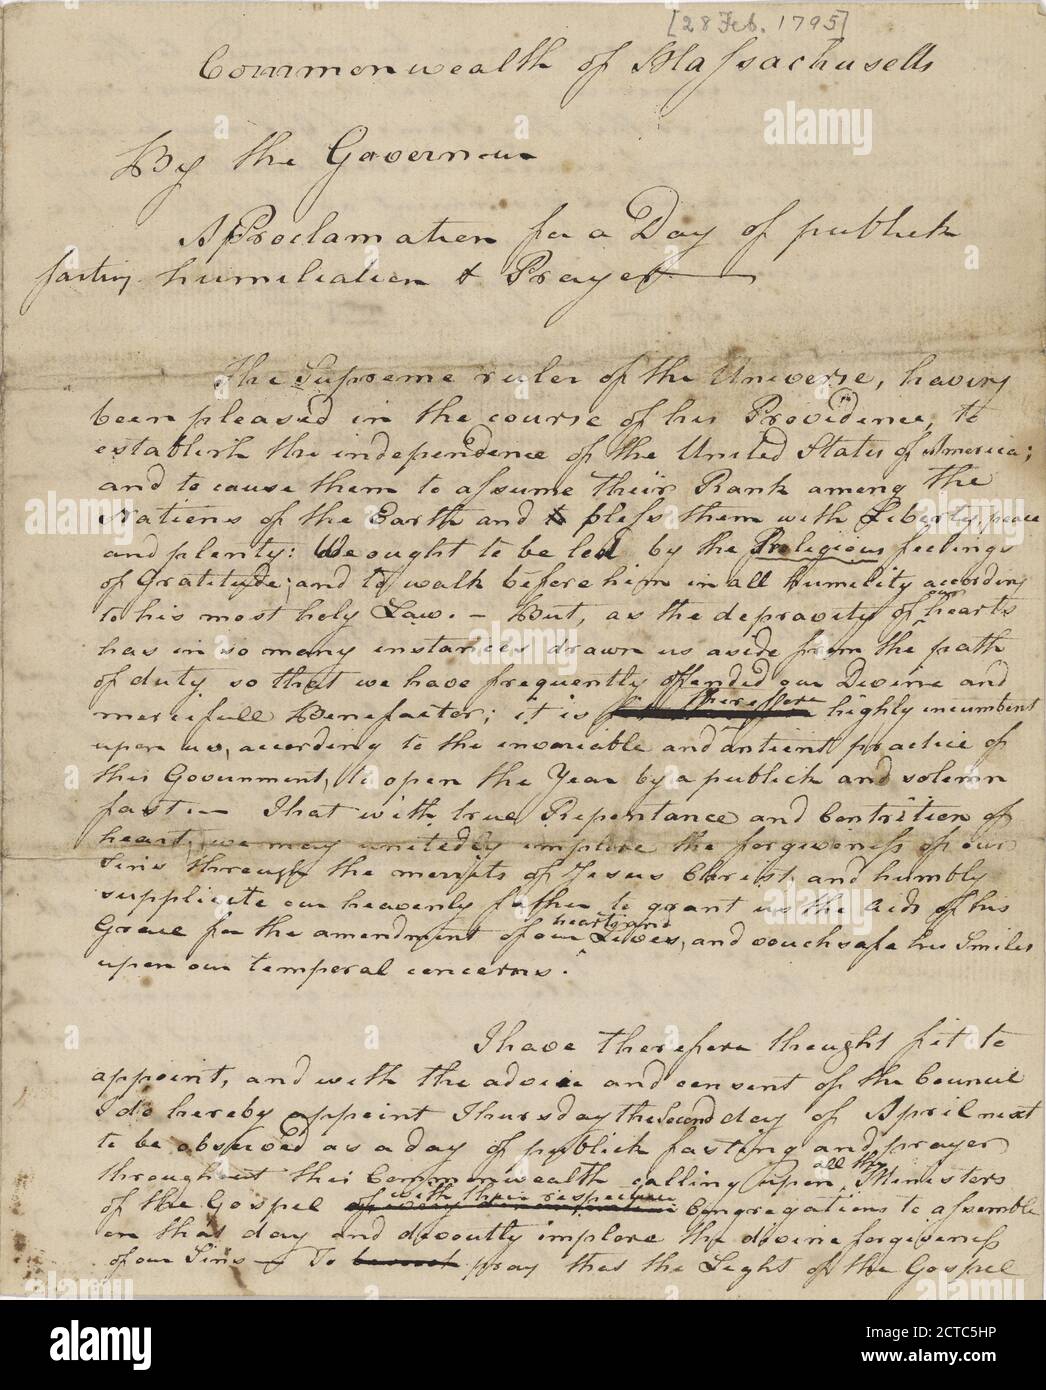 [28 Feb. 1795]
Commonwealth of Massachusetts
By the Governour
A Proclamation for a Day of publick
fasting humiliation & Prayer
The Supreme ruler of the Universe, having
been pleased in the course of his Providence, to
establish the independence of the United States of America;
and to cause them to assume their Rank among the
Nations of the Earth and bless them with Liberty, peace
and plenty: We ought to be led by the Religious feelings
of Gratitude; and to walk before him in all humility according
to his most holy Law. - But, as the depravity of our hearts
has in so many instances drawn us aside from the path
of duty, so that we have frequently offended our Divine and
mercifull Benefactor; it is therefore highly incumbent
upon us, according to the invariable and antient practice of
this Government, to open the Year by a publick and solemn
fast. — That with true Repentance and Contrition of
heart, we may unitedly implore the forgiveness of our
Sins through the merits of Jesus Christ, and humbly
supplicate our heavenly father to grant us the aids of his
Grace for the amendment of our hearts and Lives, and vouchsafe his Smiles
upon our temporal concerns.
I have therefore thought fit to
appoint, and with the advice and consent of the Council
I do hereby appoint Thursday the Second day of April next
to be observed as a day of publick fasting and prayer
throughout this Commonwealth calling upon all the Ministers
of the Gospel with their respective Congregations to assemble
on that day and devoutly implore the divine forgiveness
of our Sins — To pray that the Light of the Gospel
alamy
Image ID: 2CTC5HP
www.alamy.com